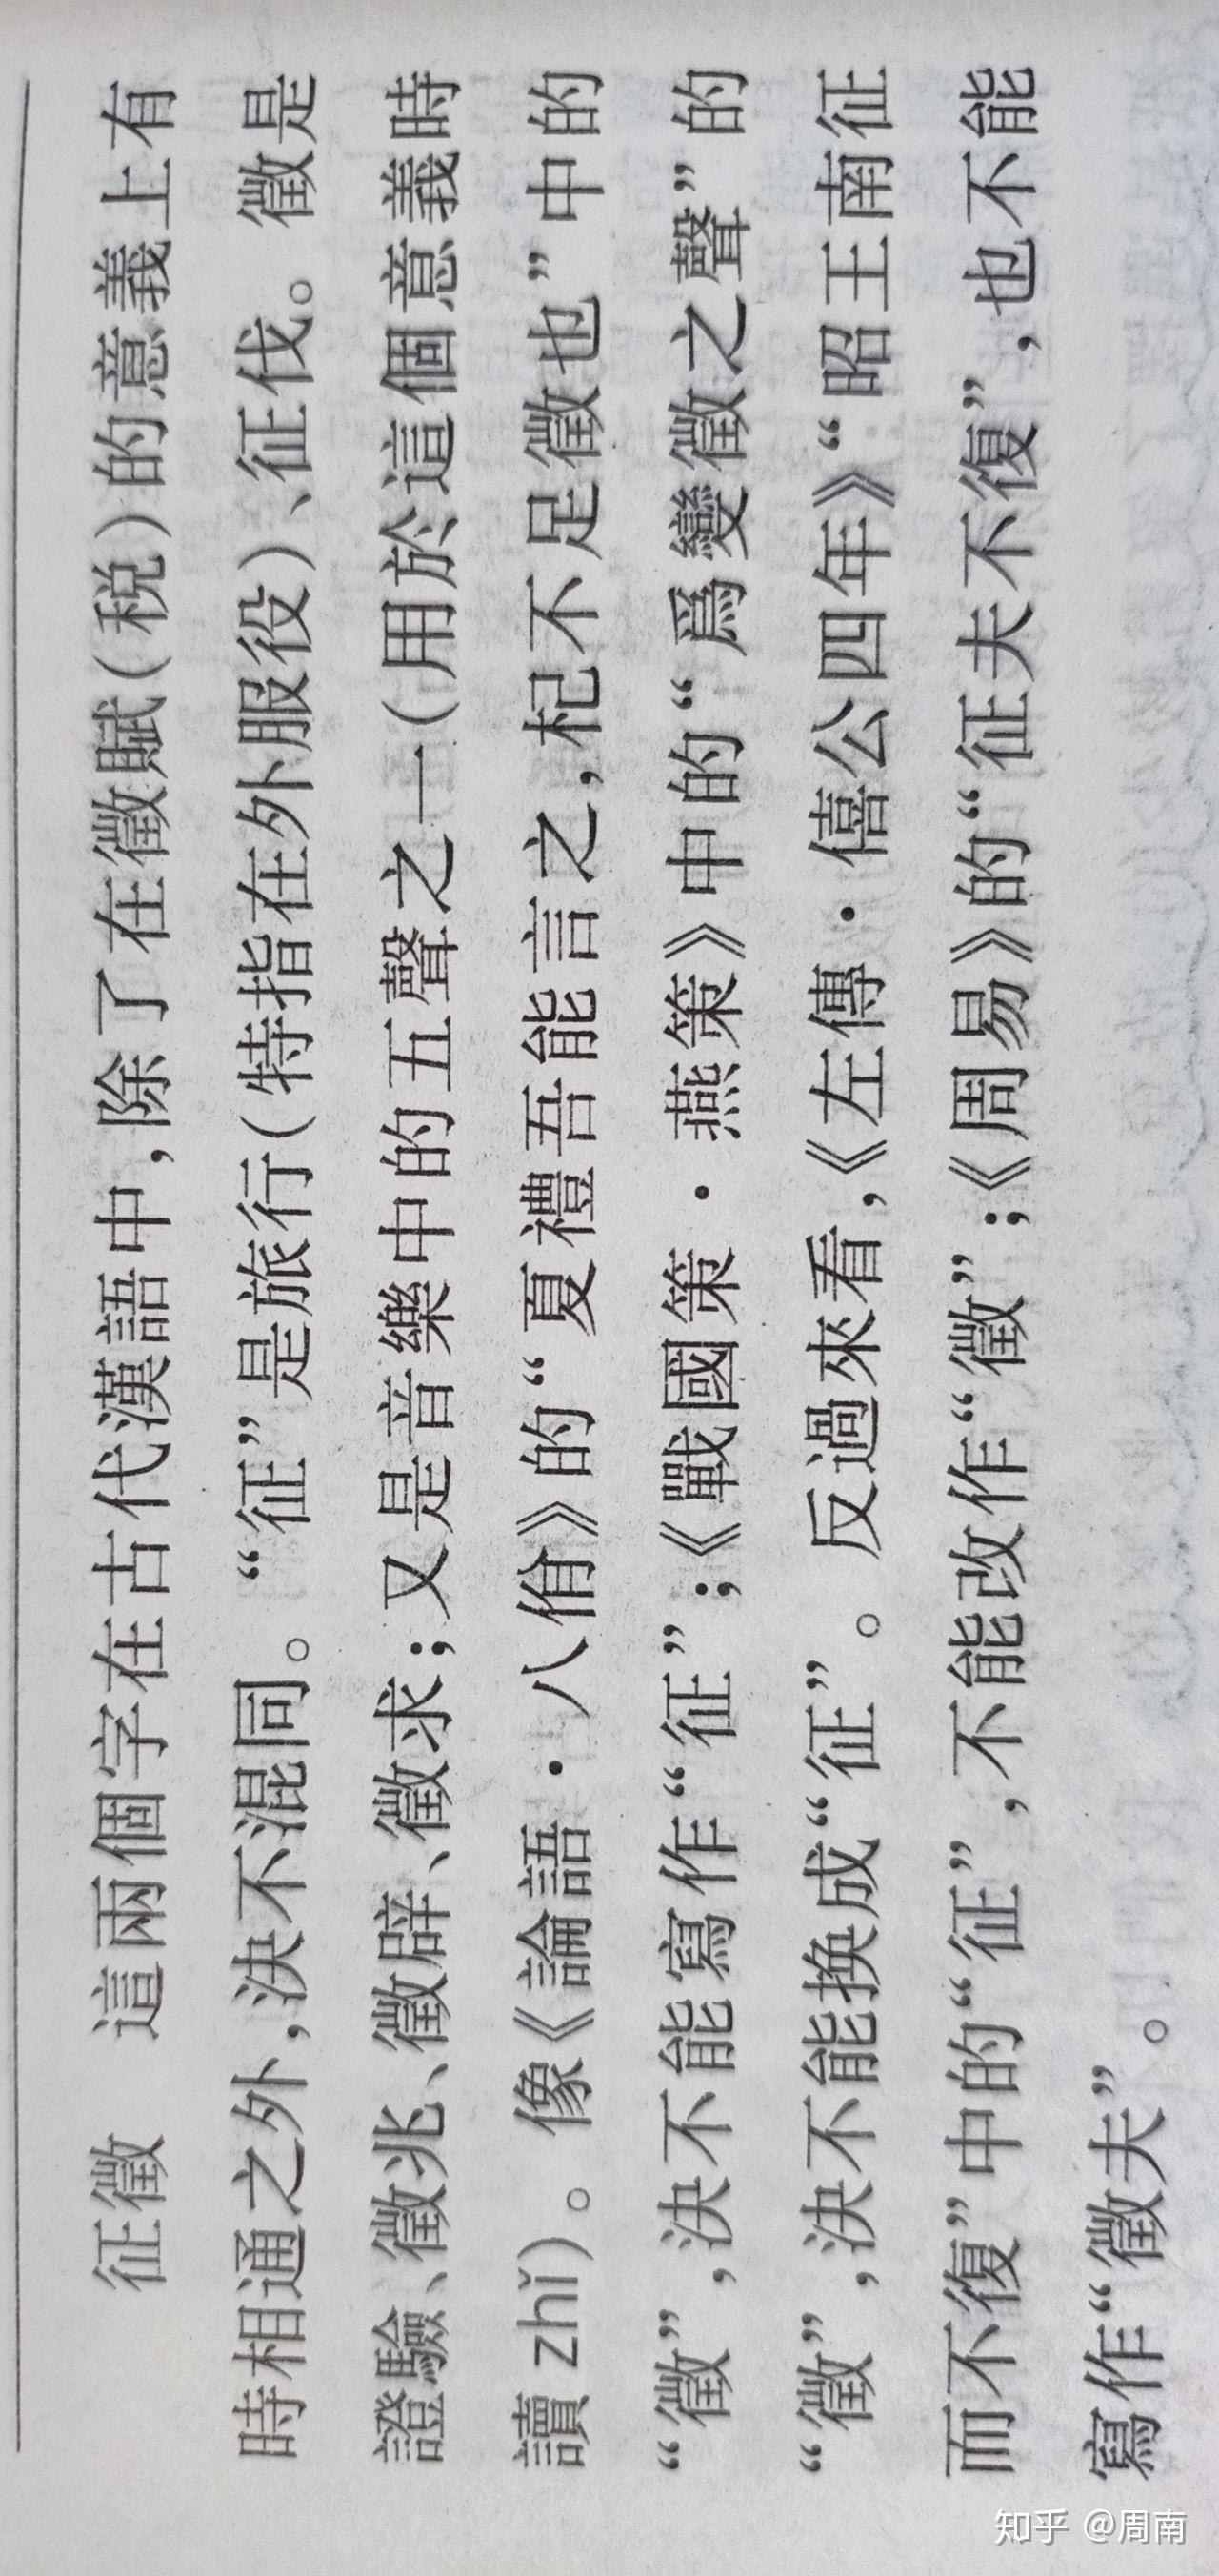 征徵　這兩個字在古代漢語中，除了在徵賦（税）的意義上有
時相通之外，決不混同。“征”是旅行（特指在外服役）、征伐。徵是
證驗、徵兆、徵辟、徵求；又是音樂中的五聲之一（用於這個意義時
讀 zhǐ）。像《論語·八佾》的“夏禮吾能言之，杞不足徵也”中的
“徵”，決不能寫作“征”；《戰國策·燕策》中的“爲變徵之聲”的
“徵”，決不能換成“征”。反過來看，《左傳·僖公四年》“昭王南征
而不復”中的“征”，不能改作“徵”；《周易》的“征夫不復”，也不能
寫作“徵夫”。
知乎 @周南